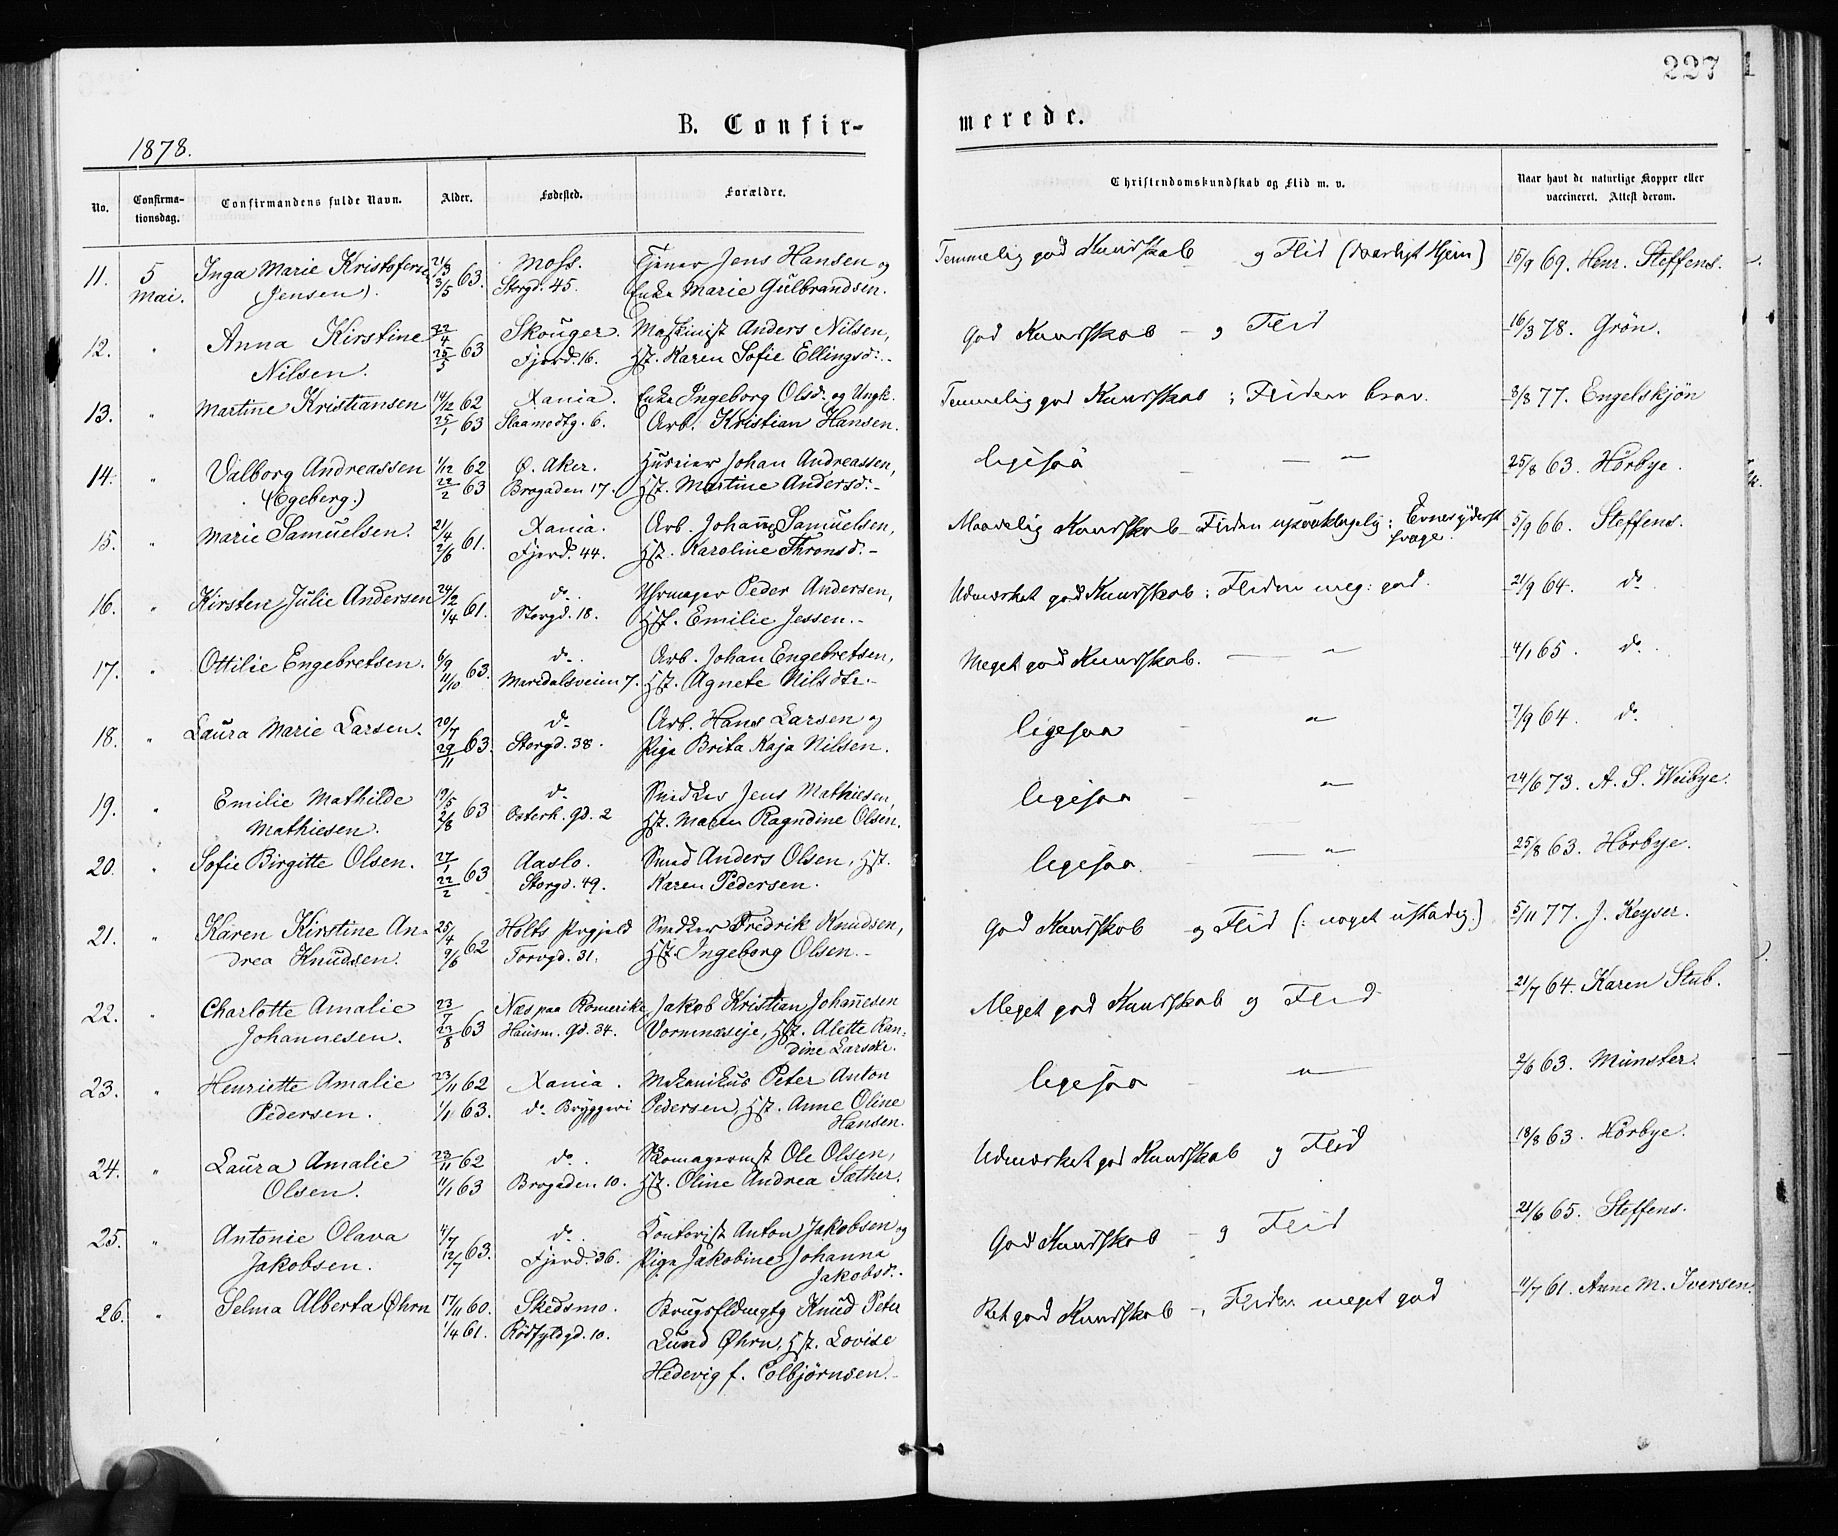 227
1878.
B. Confir-
merede.
No.
Confirma-
tionsdag.
Confirmandens fulde Navn.
Alder.
Fødested.
Forældre.
Christendomskundskab og Flid m. v.
Naar havt de naturlige Kopper eller
vaccineret. Attest derom.
11. 5 Inga Marie Kristofersen 21/3 63. Moss. Tjener Jens Hansen og Temmelig god Kundskab og Flid (daarligt Hjem) 15/9 69. Henr. Steffens.
Mai. (Jensen). 3/5 Storgd. 45. Enke Marie Gulbrandsen.
12. " Anna Kirstine 22/4 63 Skouger. Maskinist Anders Nilsen, God Kundskab - og Flid 16/3 78. Grön.
Nilsen. 25/5 Fjerd. 16. Hst. Karen Sofie Ellingsdr.-
13. " Martine Kristiansen 14/12 62 Xania. Enke Ingeborg Olsd. og Ungk. Temmelig god Kundskab ; Fliden brav. 8/8 77. Engelskjön
25/1 63 Slaamotg. 6. Arb. Kristian Hansen.
14. " Valborg Andreassen 1/12 62 Ø. Aker. Huseier Johan Andreassen, ligesaa - - " - 25/8 63. Hörbye.
(Egeberg.) 22/2 63 Brogaden 17. Hst. Martine Andersdr.-
15. " Marie Samuelsen. 21/4 61. Xania. Arb. Johannes Samuelsen, Maadelig Kundskab - Fliden upaaklagelig ; Evnes yderst 5/9 66. Steffens.
2/6 Fjerd. 44. Hst. Karoline Thronsd.- svage.
16. " Kirsten Julie Andersen 24/2 61. do. Uhrmager Peder Andersen, Udmærket god Kundskab ; Fliden meg: god. 21/9 64. do
1/4 Storgd. 18. Hst. Emilie Jessen.-
17. " Ottilie Engebretsen. 6/9 63. do. Arb. Johan Engebretsen, Meget god Kundskab. - " 4/1 65. do.
11/10 Maridalsveien 7. Hst. Agnete Nilsdtr.-
18. " Laura Marie Larsen. 20/7 63. do Arb. Hans Larsen og ligesaa - " 7/9 64. do.
29/11 Storgd. 38. Pige Brita Kaja Nilsen.
19. " Emilie Mathilde 19/5 63 do Snedker Jens Mathiesen, ligesaa - " 24/6 73. A. S. Weibye.
Mathiesen. 2/8 Osterh. gd. 2 Hst. Maren Ragndine Olsen.
20. " Sofie Birgitte Olsen. 27/1 63 Aaslo. Smed Anders Olsen, Hst. ligesaa. - " 25/8 63. Hörbye.
22/2 Storgd. 49. Karen Pedersen.
21. " Karen Kirstine An- 25/4 62 Holts Prgjeld Snedker Fredrik Knudsen, God Kundskab og Flid (: noget ustadig:) 5/11 77. J. Keyser.
drea Knudsen. 9/6 Torvgd. 31. Hst. Ingeborg Olsen.-
22. " Charlotte Amalie 23/7 63 Næs paa Romerike Jakob Kristian Johannesen Meget god Kundskab og Flid 21/7 64. Karen Stub.
Johannesen. 23/8 Hausm. gd. 34. Vormnæseje, Hst. Alette Ran-
dine Larsdtr.
23. " Henriette Amalie 23/11 62 Xania. Mekanikus Peter Anton ligesaa - " 2/6 63. Münster.
Pedersen. 1/11 63. do Bryggeri Pedersen, Hst. Anne Oline
Hansen.
24. " Laura Amalie 23/11 62 do. Skomagermst Ole Olsen, Udmærket god Kundskab og Flid 18/8 63. Hörbye.
Olsen. 11/1 63 Brogaden 10. Hst. Oline Andrea Sæther.
25. " Antonie Olava 4/7 63. do. Kontorist Anton Jakobsen og God Kundskab - og Flid 21/6 65. Steffens.
Jakobsen. 12/7 Fjerd. 36. Pige Jakobine Johanna
Jakobsd.-
26. " Selma Alberta Øhrn 17/11 60. Skedsmo. Brugsfldmgtg Knud Peter Ret god Kundskab -, Fliden meget god 11/7 61. Anne M. Iversen.
1/4 61. Rödfyldgd. 10. Lund Øhrn, Hst. Lovise
Hedevig f. Colbjørnsen.-